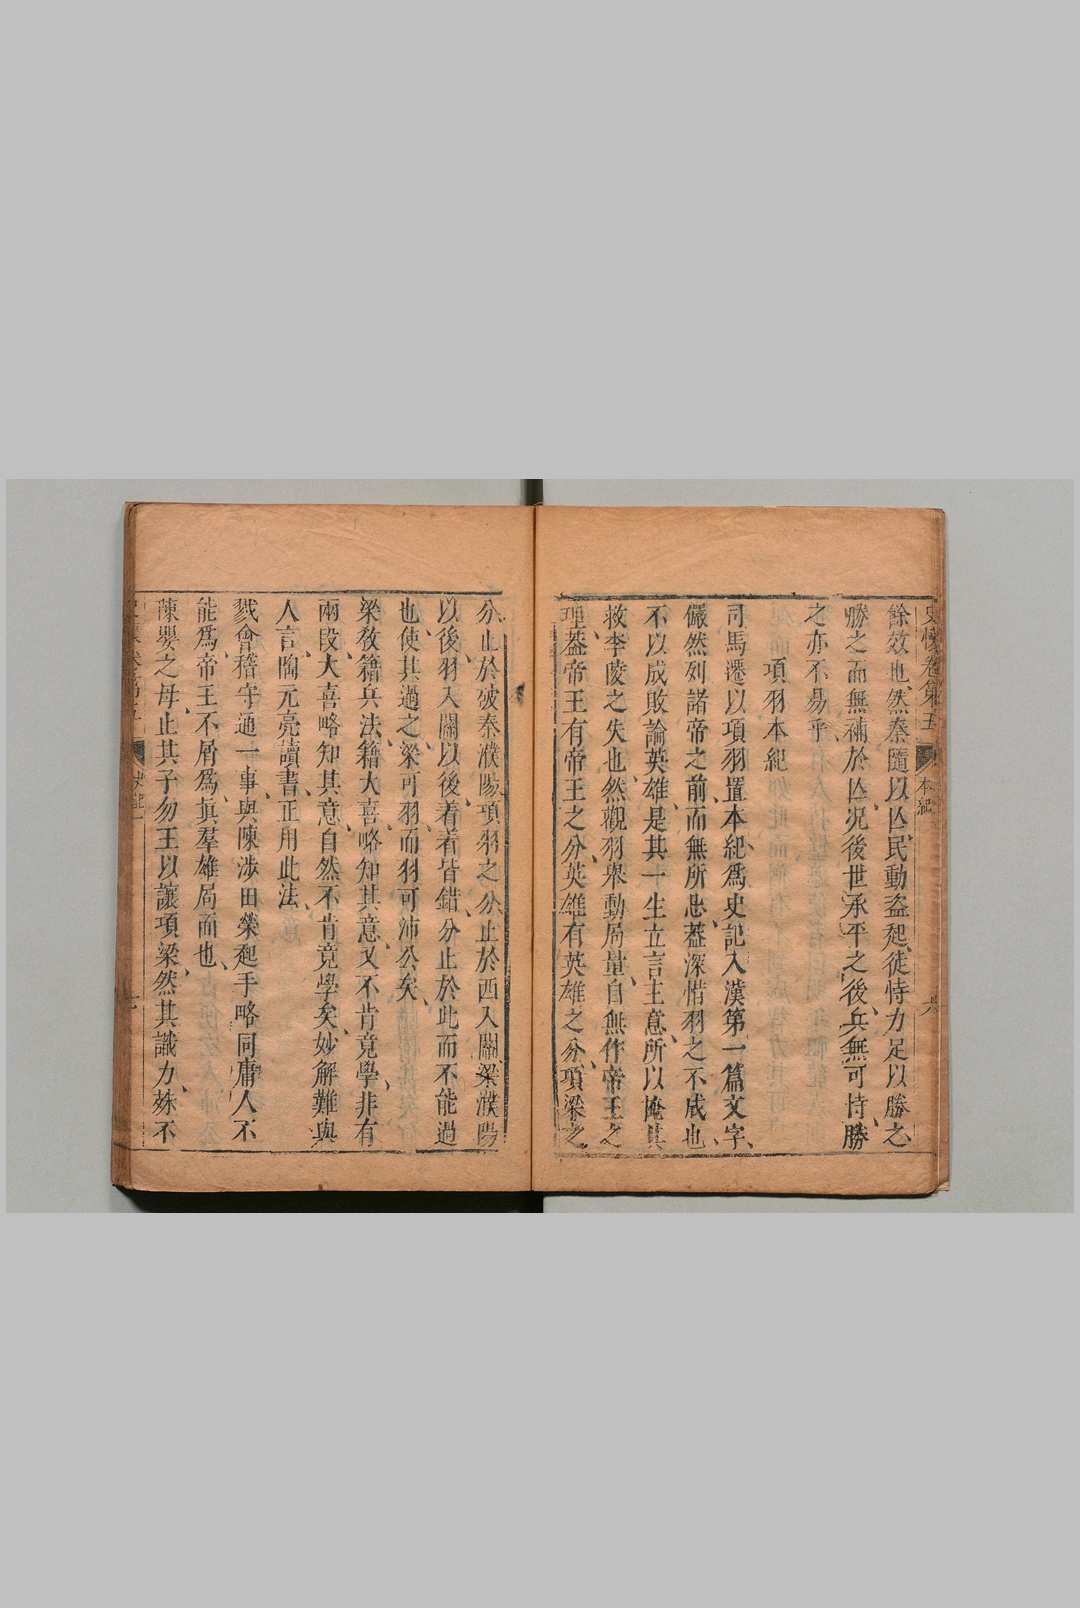 史懷卷第五 本紀 六
餘效也然秦隨以亾民動盗起徒恃力足以勝之
勝之而無補於亾况後世承平之後兵無可恃勝
之亦不易乎
項羽本紀
司馬遷以項羽置本紀爲史記入漢第一篇文字
儼然列諸帝之前而無所忌葢深惜羽之不成也
不以成敗論英雄是其一生立言主意所以掩其
救李陵之失也然觀羽舉動局量自無作帝王之
理葢帝王有帝王之分英雄有英雄之分項梁之
分止於破秦濮陽項羽之分止於西入關梁濮陽
以後羽入關以後着着皆錯分止於此而不能過
也使其過之梁可羽而羽可沛公矣
梁敎籍兵法籍大喜略知其意又不肯竟學非有
兩段大喜略知其意自然不肯竟學矣妙解難與
人言陶元亮讀書正用此法
戮會稽守通一事與陳涉田榮起手略同庸人不
能爲帝王不屑爲眞羣雄局而也
陳嬰之母止其子勿王以讓項梁然其識力殊不